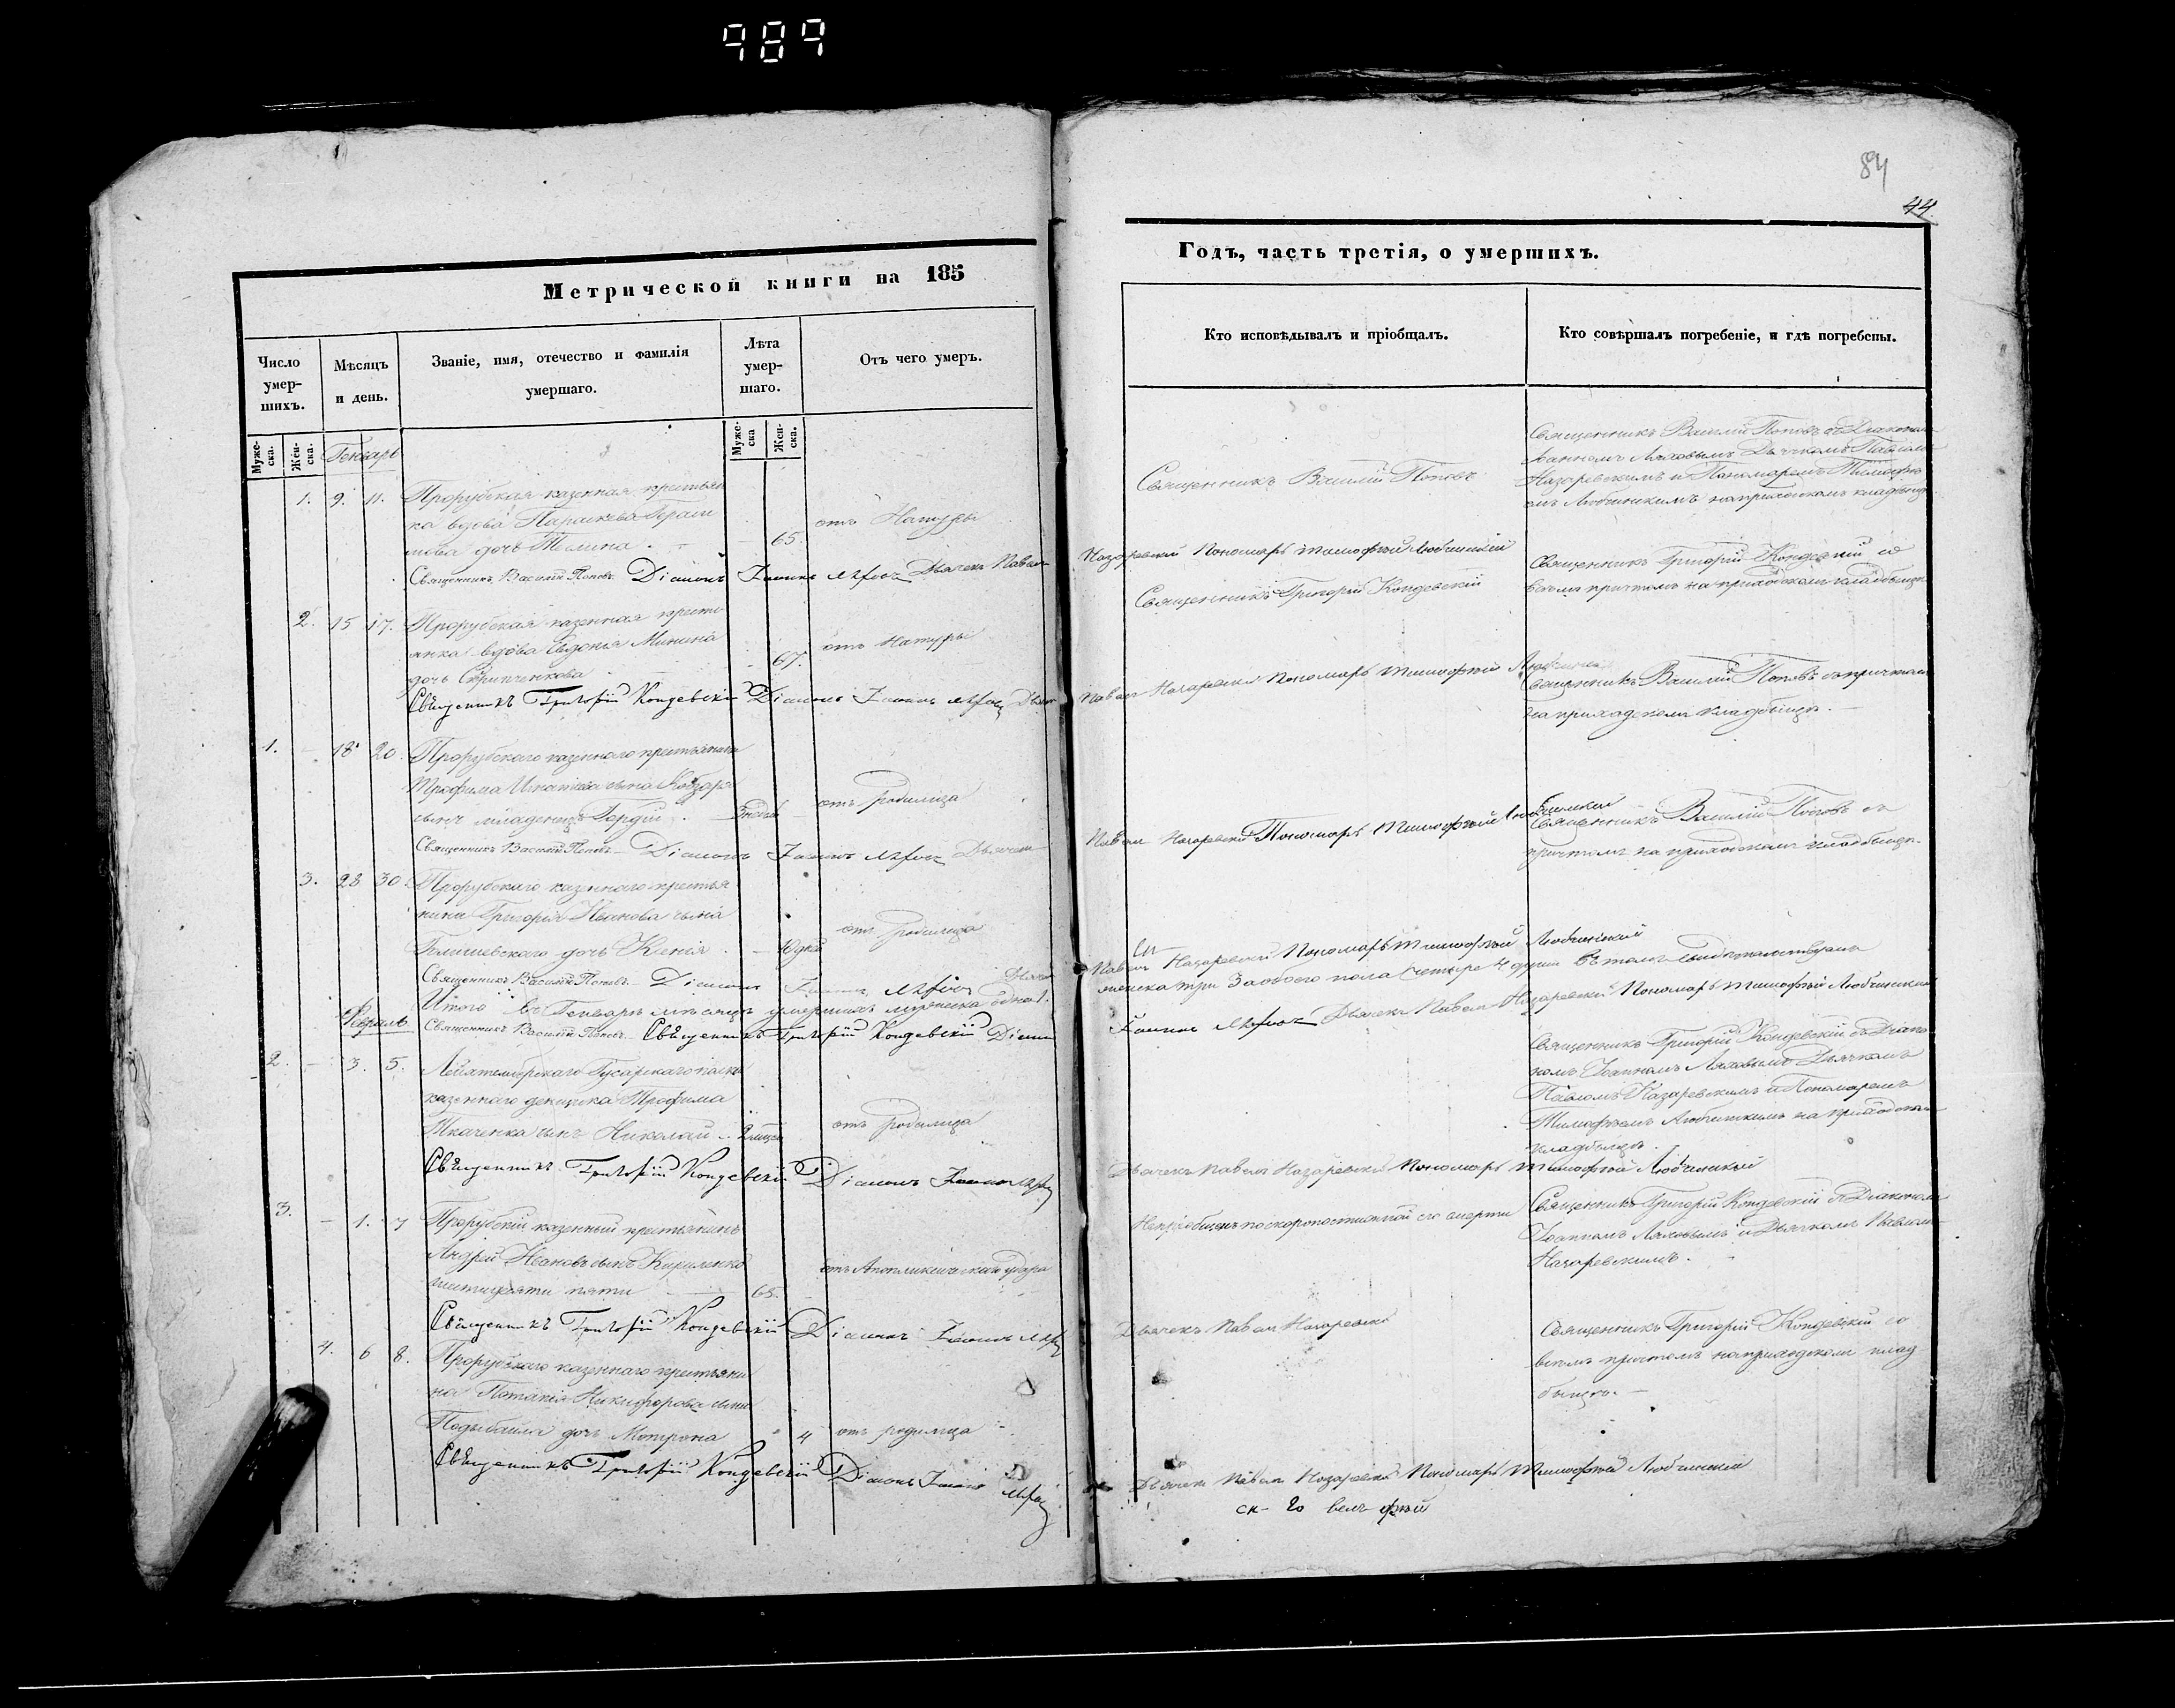 989
84
44
Метрической книги на 185
Годъ, часть третія, о умершихъ.
Число умер-шихъ.
Мѣсяцъ и день.
Званіе, имя, отечество и фамилія умершаго.
Лѣта умер-шаго.
Отъ чего умеръ.
Кто исповѣдывалъ и пріобщалъ.
Кто совѣршалъ погребеніе, и гдѣ погребены.
Муже-ска.
Жен-ска.
Муже-ска
Жен-ска.
Генварь
1. 9. 11.
Прорубская казенная крестьян
ка вдова Параскева Гераси
мова дочь
65.
отъ Натуры
Священникъ Василій Поповъ
Священникъ Василій Поповъ съ Діакономъ
Іоанномъ Ляховымъ Дьячкомъ Павломъ
Назаревскимъ и Пономаремъ Тимофѣ
емъ Любицкимъ на приходскомъ кладбищѣ
Священникъ Василій Поповъ. Діаконъ Іоаннъ Дьячекъ Павелъ
Назаревскій Пономарь Тимофѣй Любицкій
2. 15 17.
Прорубская казенная кресть
янка вдова Евдокія Минина
дочь Скрипченкова
67.
отъ Натуры
Священникъ Григорій Кондевскій
Священникъ Григорій Кондевскій со
всемъ причтомъ на приходскомъ кладбищѣ
Священникъ Григорій Кондевскій Діаконъ Іоаннъ
Павелъ Назаревскій Пономарь Тимофѣй
1. – 18 20.
Прорубскаго казеннаго крестьянина
Трофима Игнатова сына Кобзаря
сынъ младенецъ Гордій
отъ родимца
Священникъ Василій Поповъ съ причтомъ
на приходскомъ кладбищѣ.
Священникъ Василій Поповъ Діаконъ Іоаннъ Дьячекъ
Павелъ Назаревскій Пономарь Тимофѣй
3. 28 30.
Прорубскаго казеннаго крестья
нина Григорія Иванова сына
дочь Ксенія
отъ родимца
Священникъ Василій Поповъ съ
причтомъ на приходскомъ кладбищѣ.
Священникъ Василій Поповъ Діаконъ Іоаннъ
Павелъ Назаревскій Пономарь Тимофѣй Любицкій
Итого въ Генварѣ мѣсяцѣ умершихъ мужеска одинъ 1.
женска три 3 а обоего пола четыре 4 души въ томъ свидѣтельствуемъ
Февраль
Священникъ Василій Поповъ Священникъ Григорій Кондевскій Діаконъ
Іоаннъ Дьячекъ Павелъ Назаревскій Пономарь Тимофѣй Любицкій
2. – 3. 5.
Гусарскаго полка
казеннаго денщика Трофима
Ткаченка сынъ Николай
отъ родимца
Священникъ Григорій Кондевскій съ Діако
номъ Іоанномъ Ляховымъ Дьячкомъ
Павломъ Назаревскимъ и Пономаремъ
Тимофѣемъ Любицкимъ на приходскомъ
кладбищѣ.
Священникъ Григорій Кондевскій Діаконъ Іоаннъ
Дьячекъ Павелъ Назаревскій Пономарь Тимофѣй Любицкій
3. – 1. 7
Прорубскій казенный крестьянинъ
Андрей Ивановъ сынъ Кириленко
пяти
65.
отъ Апоплексическаго удара
Непріобщенъ по скоропостижной его смерти
Священникъ Григорій Кондевскій съ Діакономъ
Іоанномъ Ляховымъ и Дьячкомъ Павломъ
Назаревскимъ.
Священникъ Григорій Кондевскій Діаконъ Іоаннъ
Дьячекъ Павелъ Назаревскій
4. 6 8.
Прорубскаго казеннаго крестьяни
на Никифорова сына
дочь Мотрона
4
отъ родимца
Священникъ Григорій Кондевскій со
всемъ причтомъ на приходскомъ клад
бищѣ.
Священникъ Григорій Кондевскій Діаконъ Іоаннъ
Дьячекъ Павелъ Назаревскій Пономарь Тимофѣй Любицкій